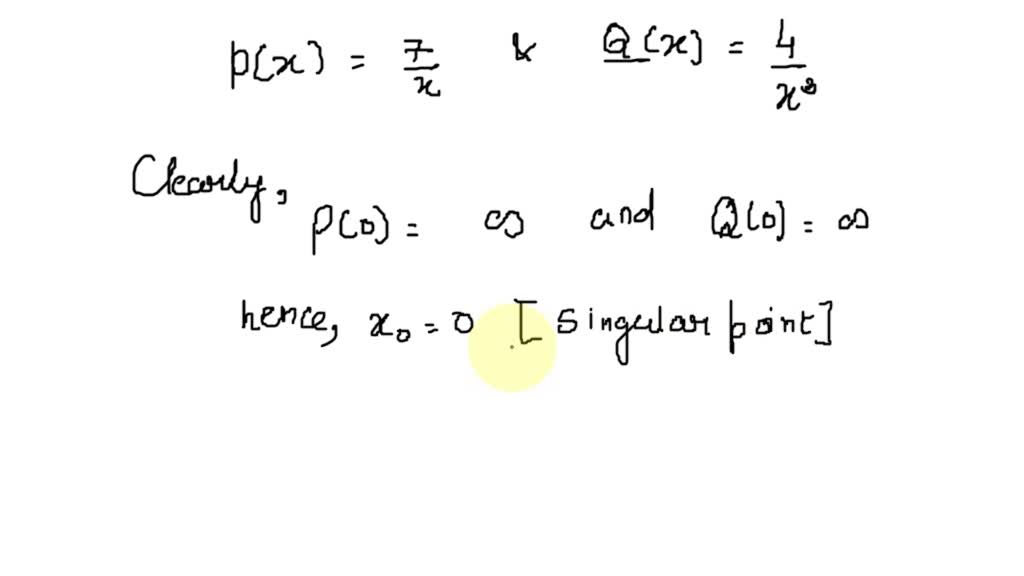 p(x) = 7/x & Q(x) = 4/x²
Clearly, P(0) = ∞ and Q(0) = ∞
hence, x₀ = 0 [Singular point]